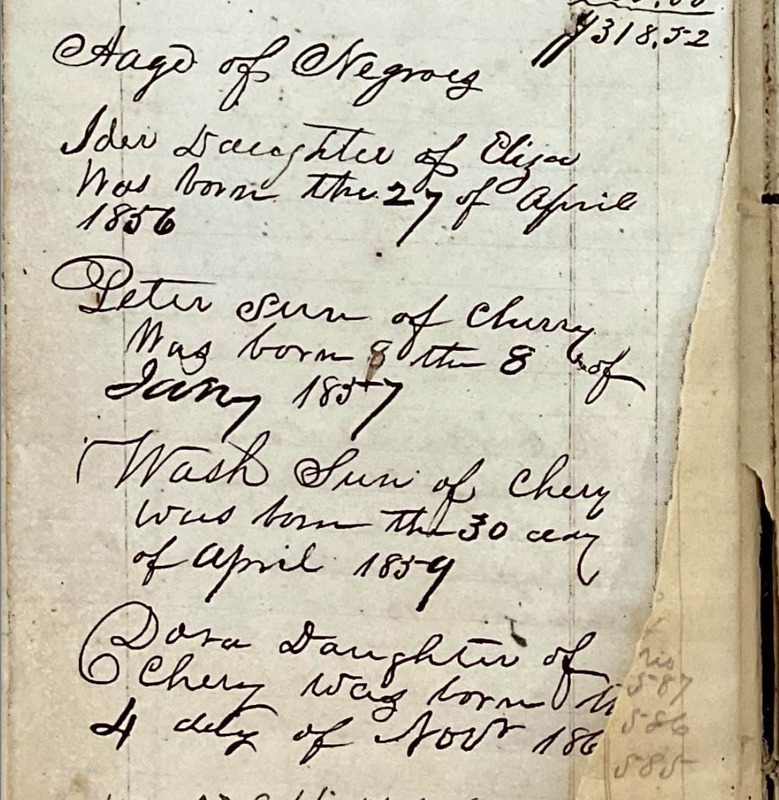 318.52
Aage of Negroes
Ider Daughter of Eliza
Was born the 27 of April
1856
Peter Sun of Cherry
Was born 8 the 8 of
Jany 1857
Wash Sun of Chery
was born the 30 day
of April 1859
Dora Daughter of
Chery was born th
4 day of Novr 186
587
586
585